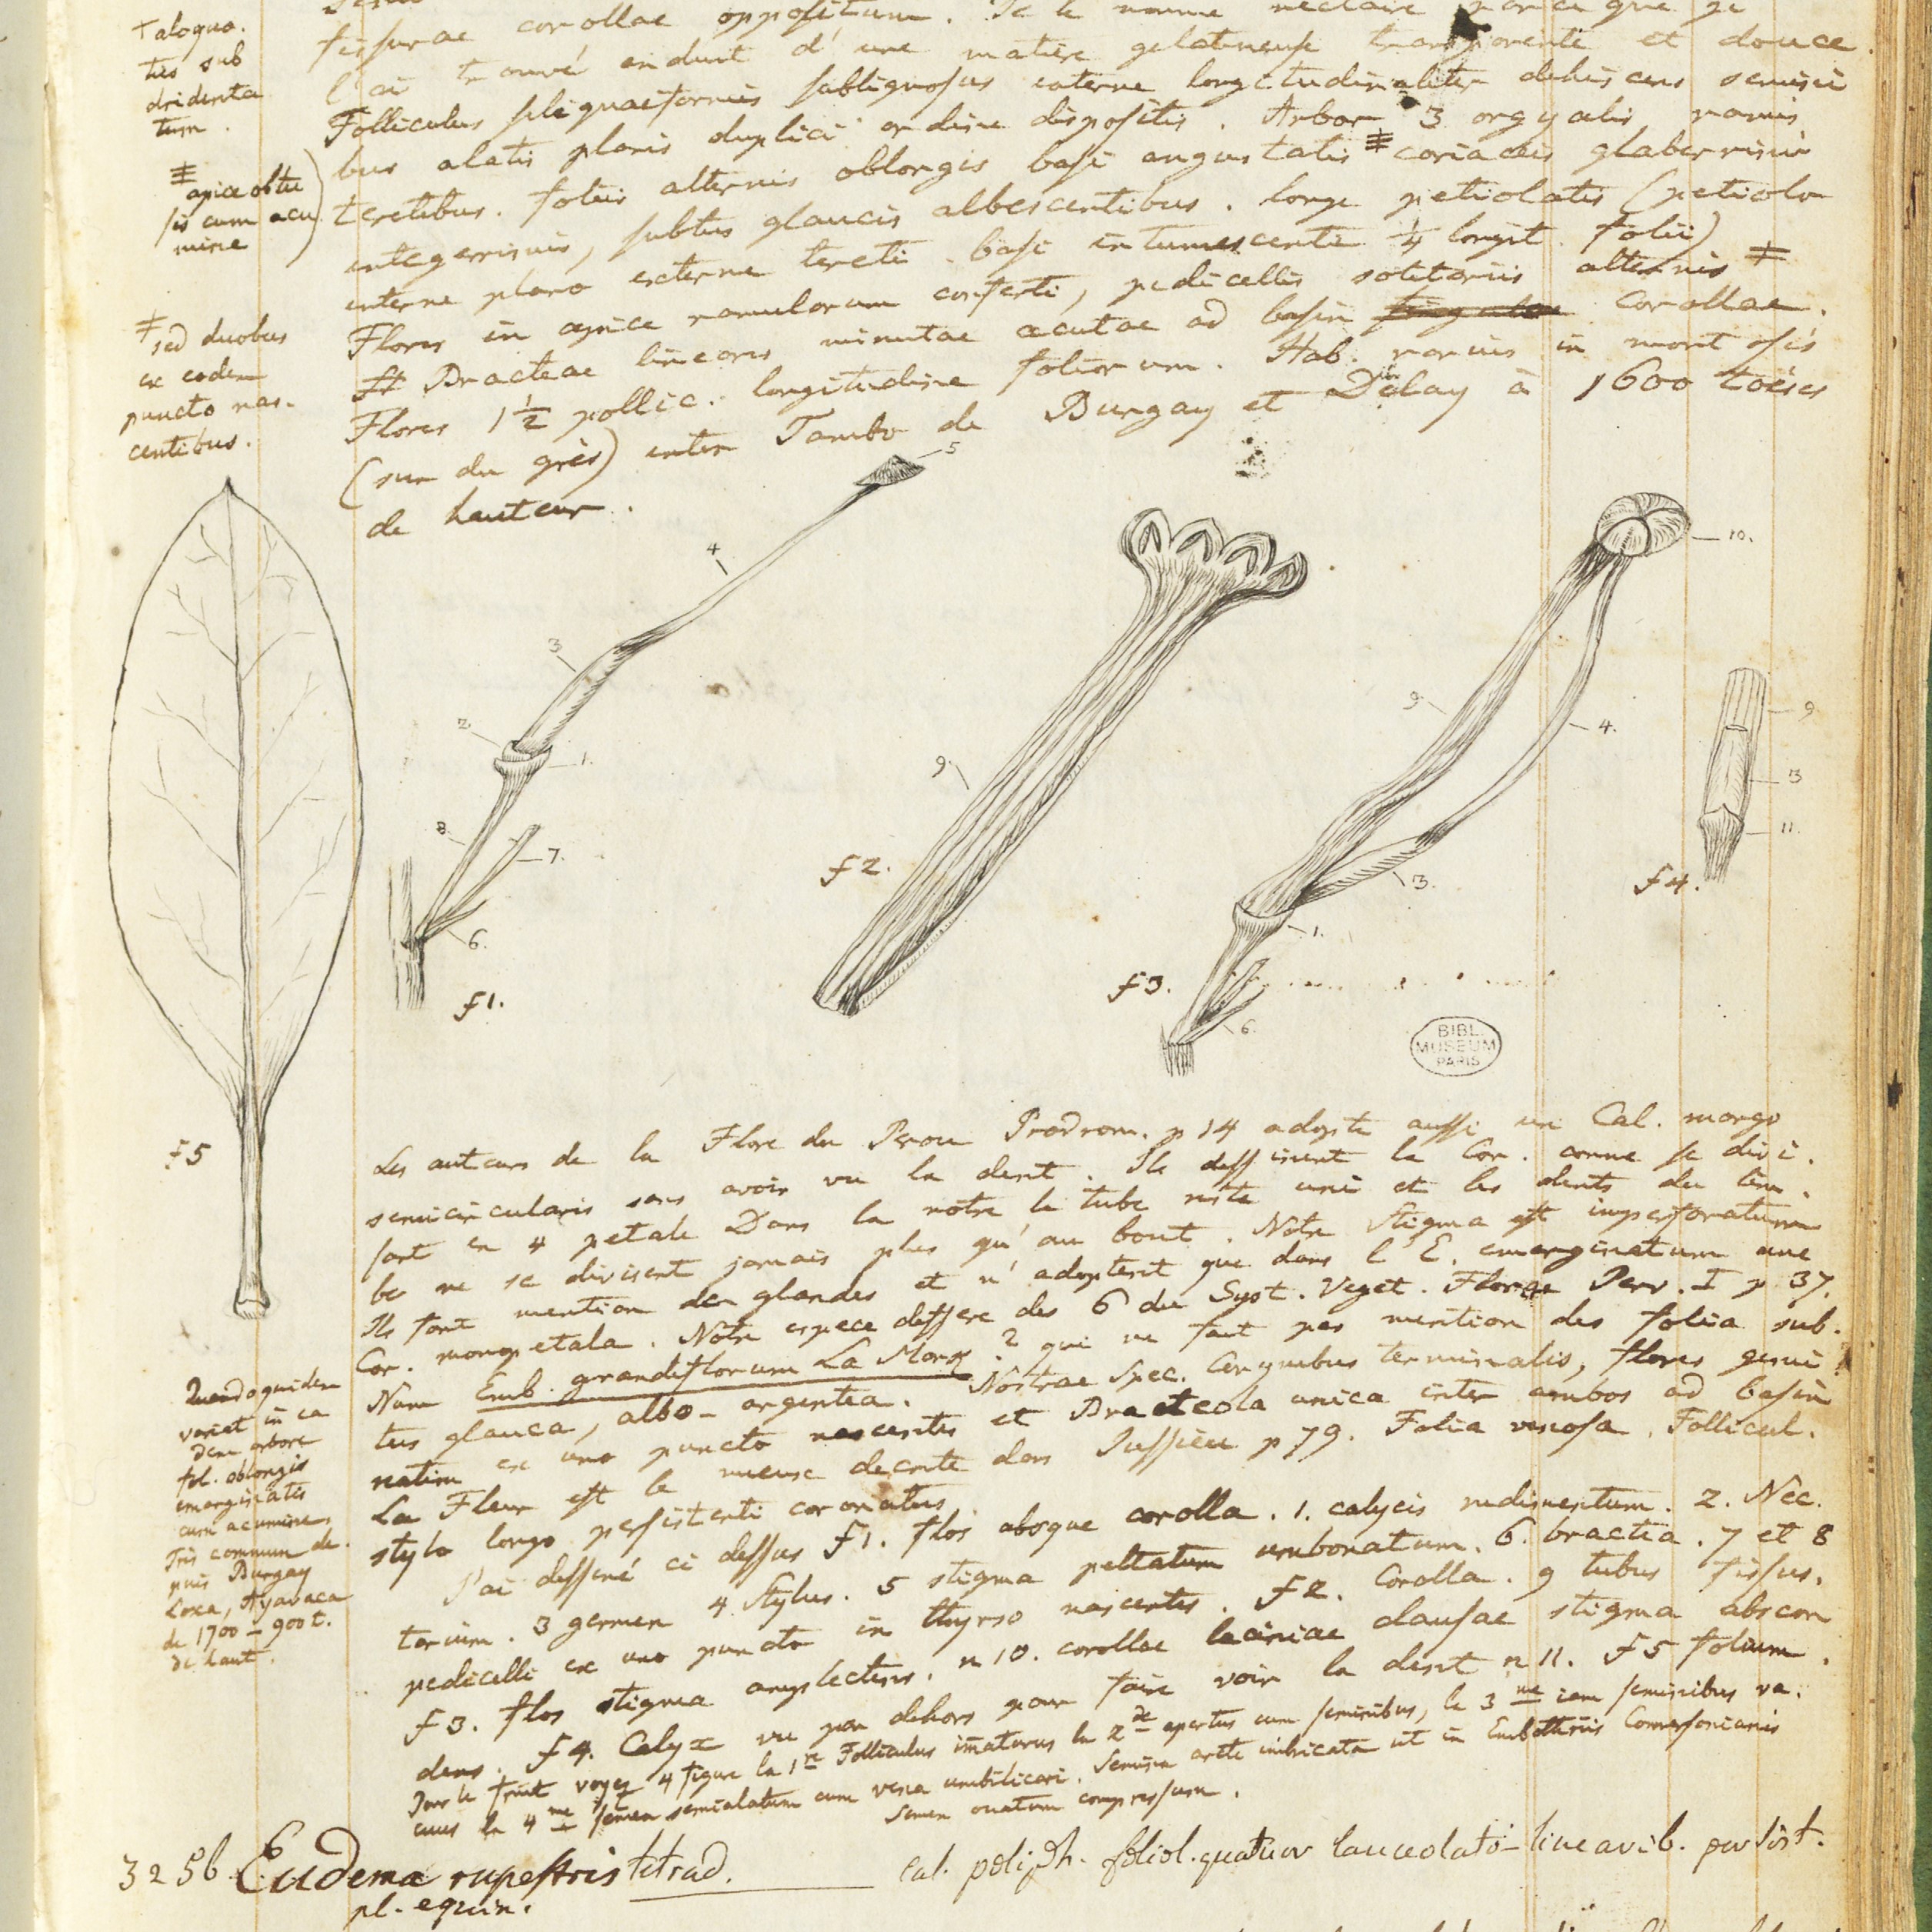 fissurae corollae oppositum. Je le nomme nectaire parce que je
l'ai trouvé enduit d'une matière gelatineuse transparente et douce.
Folliculus siliquaeformis sublignosus interne longitudinaliter dehiscens semini
bus alatis planis duplici ordine dispositis. Arbor 3 orgyalis ramis
teretibus. foliis alternis oblongis basi angustatis ≢ coriaceis glaberrimis
integerrimis, subtus glaucis albescentibus. longe petiolatis (petiolo
interne plano externe tereti basi intumescente ¼ longit. folii)
Flores in apice ramulorum conferti, pedicellis solitariis alternis ‡
# Bracteae lineares minutae acutae ad basin corollae.
Flores 1½ pollic. longitudine foliorum. Hab. rarius in montosis
(sur du grès) inter Tambo de Burgay et Delay à 1600 toises
de hauteur.
+ aloquo.
ties sub
dridenta
tum.
≢ apice obtu
sis cum acu
mine
‡ sed duobus
ex eodem
puncto nas-
centibus.
5
4
3
2
1.
8
7.
6.
f 1.
9
f 2.
10.
9
4.
3.
1.
6
f 3.
9
3
11.
f 4.
f 5
BIBL.
MUSEUM
PARIS
Les auteurs de la Flore du Perou Prodrom. p 14 adopte aussi un Cal. margo
semicircularis sans avoir vu la dent. Ils deffinent la Cor. comme se divi.
sant en 4 petale Dans la notre le tube reste uni et les dents du lim.
be ne se divisent jamais plus qu'au bout. Notre Stigma est imperforatum
Ils font mention des glandes et n'adoptent que dans l'E. emarginatum une
Cor. monopetala. Notre espece differe des 6 du Syst. Veget. Florae Peru. I p 37.
Num Emb. grandiflorum La Mark? qui ne fait pas mention des folia sub.
tus glauca, albo-argentea. Nostrae Spec. Corymbus terminalis, flores gemi
natim ex uno puncto nascentes et Bracteola unica inter ambos ad basin
La Fleur est le mieux decrite dans Jussieu p 79. Folia viscosa, Follicul.
stylo longo persistenti coronatus.
J'ai dessiné ci dessus f 1. flos absque corolla. 1. calycis rudimentum. 2. Nec.
tarium. 3 germen 4 Stylus. 5 stigma peltatum umbonatum. 6. bractea. 7 et 8
pedicelli ex uno puncto in thyrso nascentes. f 2. Corolla. 9 tubus fissus.
f 3. flos stigma amplectens. n 10. corollae laciniae clausae stigma abscon
dens. f 4. Calyx vu par dehors pour faire voir la dent n 11. f 5 folium.
Pour le fruit voyez 4 figure la 1re Folliculus imaturus la 2de apertus cum seminibus, le 3me iam seminibus va.
cuus la 4me semen semialatum cum vena umbilicari. Semina arcte imbricata ut in Embothriis Comersonianis
Semen ovatum compressum.
Quandoquidem
variat in ea
dem arbore
fol. oblongis
emarginatis
cum acumine
Très commun de.
puis Burgay
Loxa, Ayavaca
de 1700 - 900 t.
de haut.
3256 Eudema rupestris tetrad. cal. poliph. foliol. quatuor lanceolato-linearib. persist.
pl. equin.